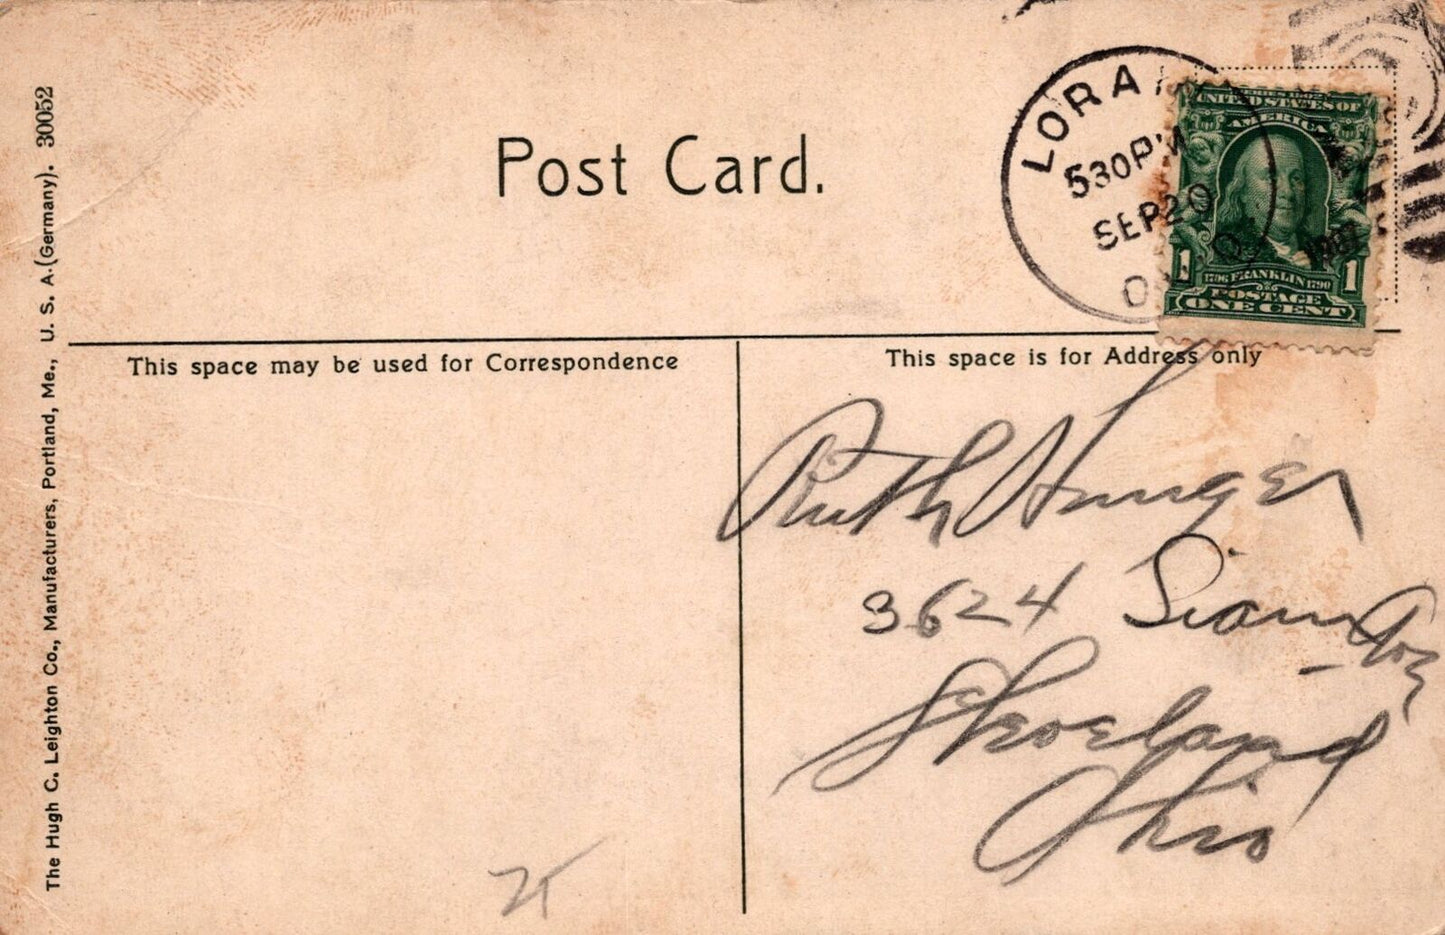 The Hugh C. Leighton Co., Manufacturers, Portland, Me., U. S. A. (Germany). 30052
Post Card.
LORAIN
530PM
SEP20
O
SERIES 1902
UNITED STATES OF
AMERICA
1 1
1706 FRANKLIN 1790
POSTAGE
ONE CENT
This space may be used for Correspondence
This space is for Address only
Ruth
3624
Cleveland
Ohio